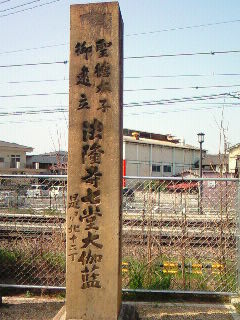 聖徳太子
御建立
法隆寺七堂大伽藍
是ヨリ北十二丁